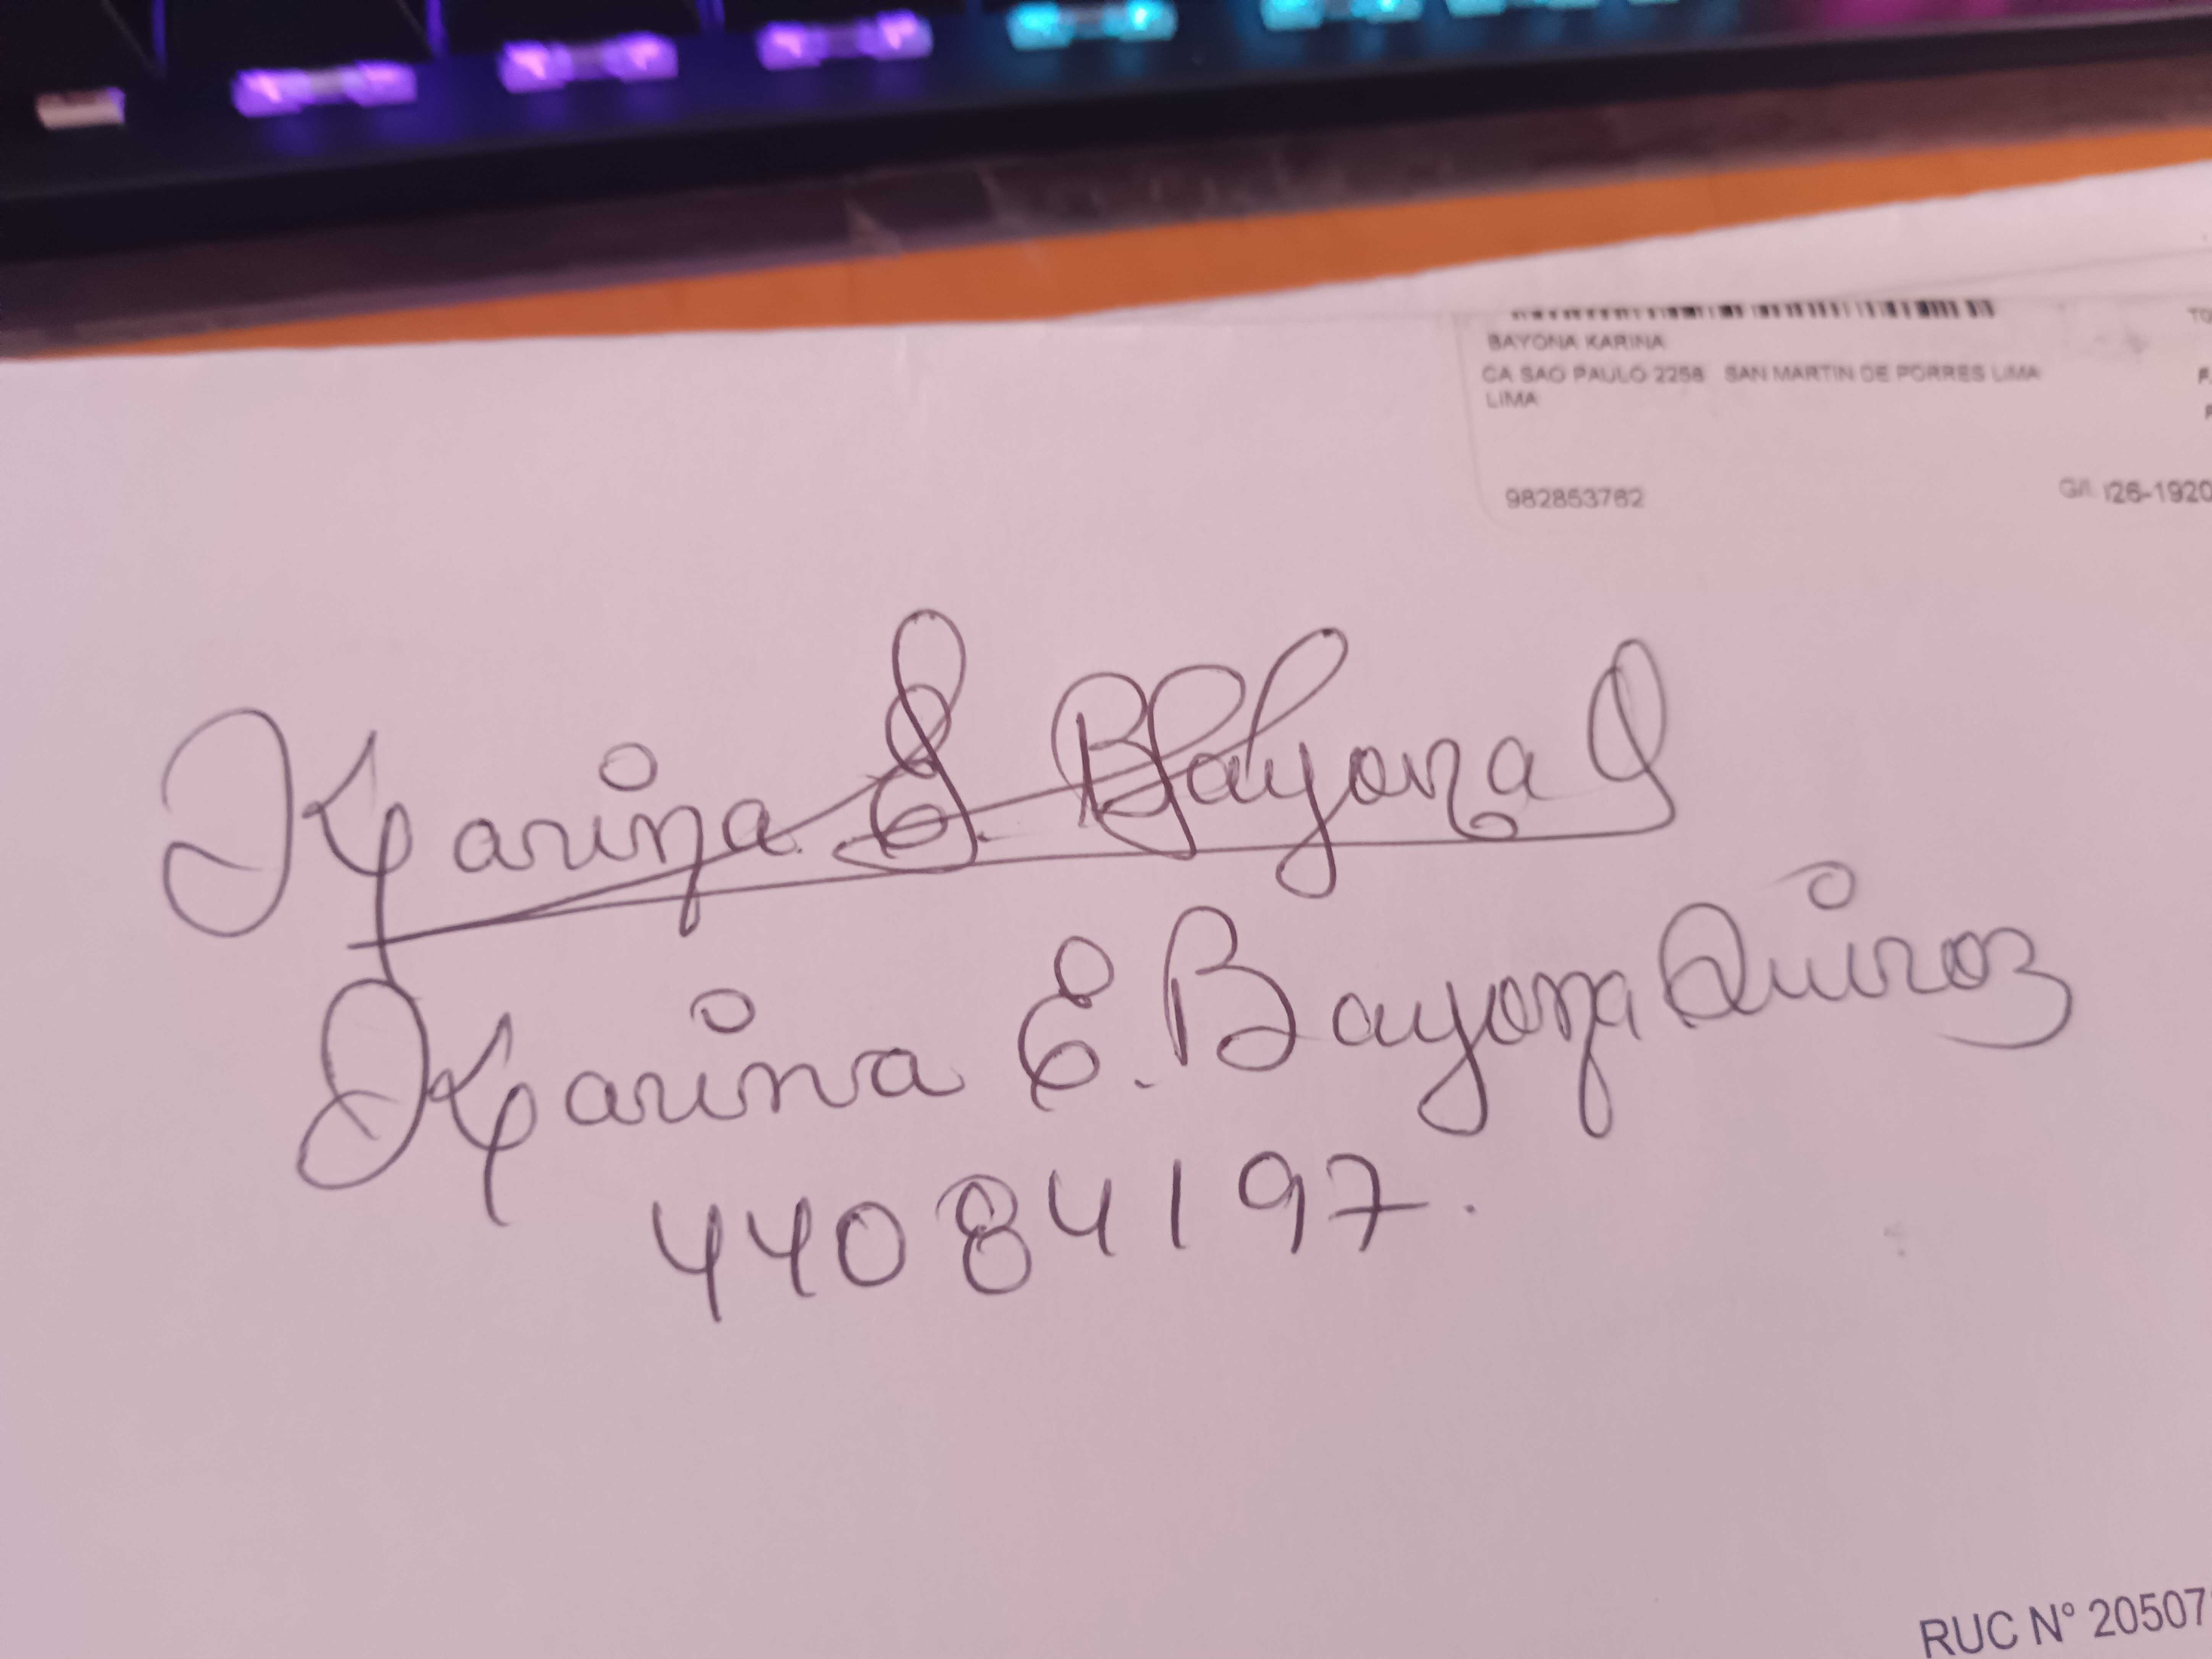 BAYONA KARINA
CA SAO PAULO 2258 SAN MARTIN DE PORRES LIMA
LIMA
982853762
26-1920
Karina E. Bayona Q
Karina E. Bayona Quiroz
44084197.
RUC N° 20507